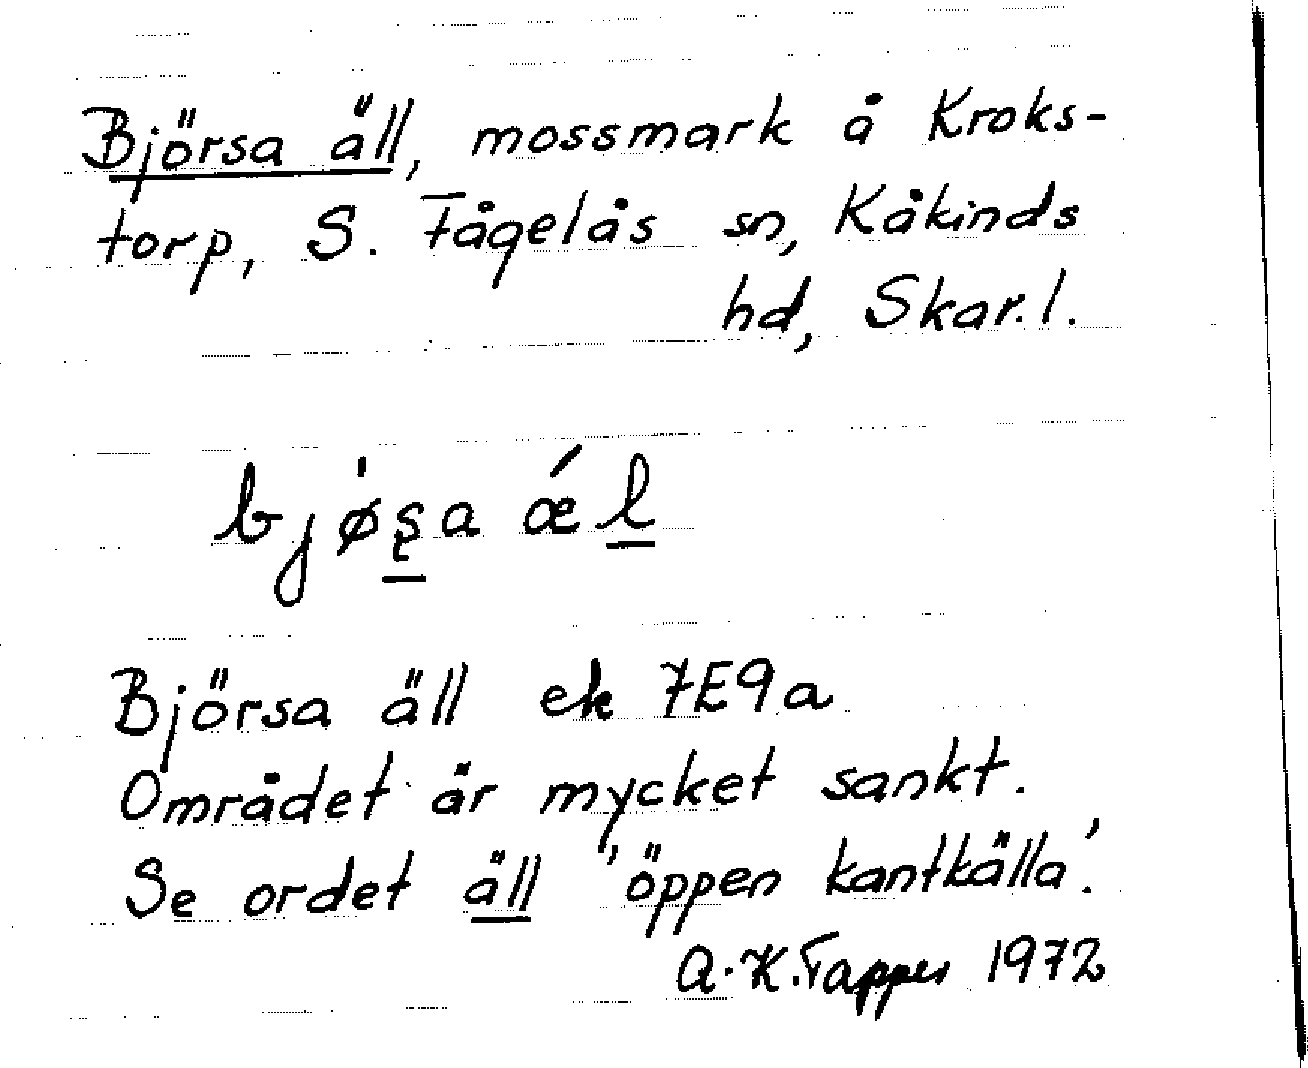 Björsa äll, mossmark å Kroks-
torp, S. Fågelås sn, Kåkinds
hd, Skar. l.
bjøʂa ǽl
Björsa äll ek 7E9a
Området är mycket sankt.
Se ordet äll 'öppen kantkälla'.
A.-K. Tapper 1972